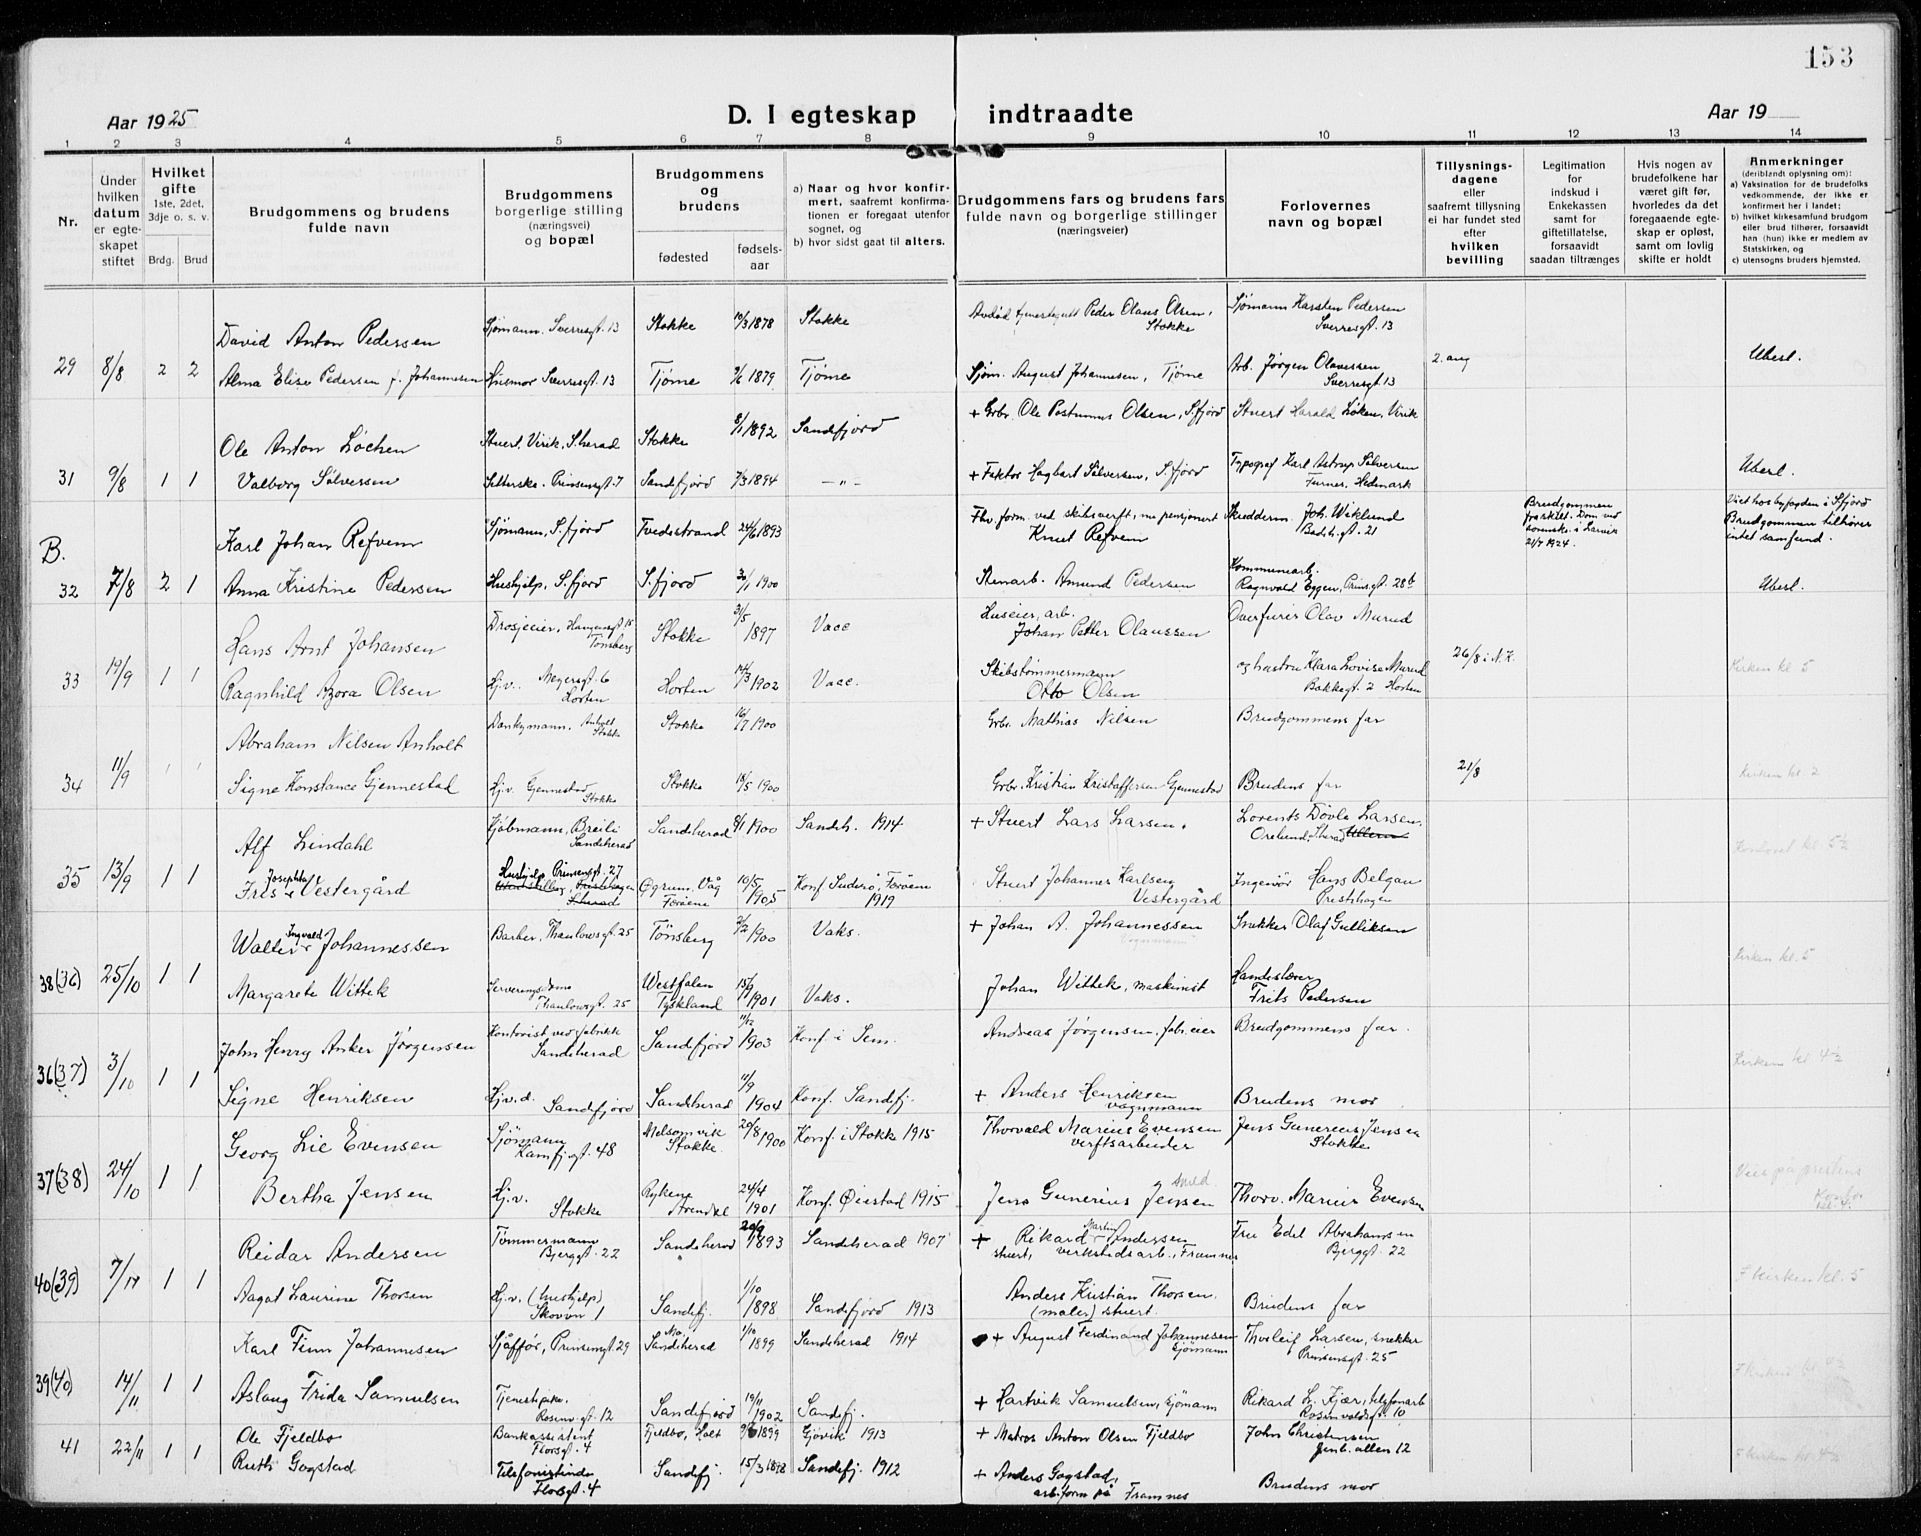 153
Aar 1925
D. I egteskap indtraadte
Aar 19
1 2 3 4 5 6 7 8 9 10 11 12 13 14
Nr.
Under hvilken datum er egteskapet stiftet
Hvilket gifte 1ste, 2det, 3dje o. s. v.
Brdg. Brud
Brudgommens og brudens fulde navn
Brudgommens borgerlige stilling (næringsvei) og bopæl
Brudgommens og brudens
fødested
fødsels-aar
a) Naar og hvor konfirmert, saafremt konfirmationen er foregaat utenfor sognet, og
b) hvor sidst gaat til alters.
Brudgommens fars og brudens fars fulde navn og borgerlige stillinger (næringsveier)
Forlovernes navn og bopæl
Tillysningsdagene eller saafremt tillysning ei har fundet sted efter hvilken bevilling
Legitimation for indskud i Enkekassen samt for giftetillatelse, forsaavidt saadan tiltrænges
Hvis nogen av brudefolkene har været gift før, hvorledes da det foregaaende egteskap er opløst, samt om lovlig skifte er holdt
Anmerkninger (deriblandt oplysning om):
a) Vaksination for de brudefolks vedkommende, der ikke er konfirmert her i landet;
b) hvilket kirkesamfund brudgom eller brud tilhører, forsaavidt han (hun) ikke er medlem av Statskirken, og
c) utensogns bruders hjemsted.
David Anton Pedersen Sjømann. Sverresgt. 13 Stokke 10/3 1878 Stokke Peder Olaus Olsen, Stokke Sjømann Karsten Pedersen Sverresgt. 13
29 8/8 2 2 Alma Elise Pedersen f. Johannesen Husmor Sverresgt. 13 Tjøme 1879 Tjøme Sjøm. August Johannesen, Tjøme Arb. Jørgen Olavessen Sverresgt. 13 2. ang Uberl.
Ole Anton Løchen Stuert, Virik, S.herad Stokke 8/1 1892 Sandefjord + Grbr. Ole Postumus Olsen, S.fjord Stuert Harald Løken, Virik
31 9/8 1 1 Valborg Sølversen Setterske. Prinsensgt. 7 Sandefjord 7/3 1894 — " — + Faktor Hagbart Sølversen, S.fjord Typograf Karl Astrup Sølversen Furnes, Hedmark Uberl.
B. Karl Johan Refvem Sjømann, S.fjord Tvedestrand 24/6 1893 Fhv. form. ved skibsverft, nu pensjonert Knut Refvem Skredderm. Joh. Wiklund Badeh.gt. 21 Brudgommen fraskilt. Dom ved 21/7 1924. Viet hos byfogden i S.fjord Brudgommen tilhører intet samfund.
32 7/8 2 1 Anna Kristine Pedersen Hushjelp, S.fjord S.fjord 1900 Stenarb. Amund Pedersen Kommunearb. Ragnvald Eggen, Prinsgt. 28b Uberl.
Hans Arnt Johansen Drosjeeier, Haugensgt 15 Tønsberg Stokke 31/5 1897 Vacc Huseier, arb. Johan Petter Olaussen Overfurer Olav Murud
33 19/9 1 1 Ragnhild Azora Olsen Hj.v. Meyersgt. 6 Horten Horten 14/3 1902 Vacc. Skibstømmermann Otto Olsen og hustru Klara Lovise Murud Bakkegt. 2 Horten 26/8 i N.K. Kirken kl 5
Abraham Nilsen Anholt Dankymann. Anholt Stokke Stokke 16/7 1900 Grbr. Mathias Nilsen Brudgommens far
34 11/9 ' ' Signe Konstance Gjennestad Hj.v. Gjennestad Stokke Stokke 18/5 1900 Grbr. Kristian Kristaffersen Gjennestad Brudens far 21/8 Kirken kl. 2
Alf Lindahl Kjøbmann, Breili Sandeherad Sandeherad 8/1 1900 Sandeh. 1914 + Stuert Lars Larsen. Lorents Døvle Larsen. Orelund, S.herad
35 13/9 1 1 Fris Josephha Vestergård Hushjelp Prinsensgt. 27 Øgrum. Våg Færöene 10/5 1905 Konf. Suderø, Færöene 1919 Stuert Johannes Karlsen Vestergård Ingeniør Hans Belgau Presthagen
Walter Ingvald Johannessen Barber, Thaulowsgt. 25 Tønsberg 1900 Vaks. + Johan A. Johannessen vognmann Snekker Olaf Gulliksen
38(36) 25/10 1 1 Margarete Wittek Serveringsdame Thaulowsgt. 25 Westfalen Tyskland 1901 Vaks. Johan Wittek, maskinist Handeslærer Frits Pedersen Kirken kl. 5
John Henry Anker Jørgensen Kontorist ved fabrikk Sandeherad Sandefjord 11/12 1903 Konf. i Sem. Andreas Jørgensen, fab. eier Brudgommens far.
36(37) 3/10 1 1 Signe Henriksen Hj.v.d. Sandefjord Sandeherad 11/9 1904 Konf. Sandefj. + Anders Henriksen vognmann Brudens mor Kirken kl 4½
Georg Lie Evensen Sjømann Kamfjgt. 48 Melsomvik Stokke. 20/8 1900 Konf. i Stokke 1915 Thorvald Marius Evensen verftsarbeider Jens Gunerius Jensen Stokke
37(38) 24/10 1 1 Bertha Jensen Hj.v. Stokke Rykene Arendal 24/4 1901 Konf. Øiestad 1915 Jens Gunerius Jensen Smed Thorv. Marius Evensen Vies på prestens Kontor kl. 4.
Reidar Andersen Tømmermann Bjerggt. 22 Sandeherad 1893 Sandeherad 1907 + Rikard Martin Andersen stuert, verkstedsarb., Framnes Fru Edel Abrahamsen Bjerggt. 22
40(39) 7/11 1 1 Aagot Laurine Thorsen Hj.v. (hushjelp) Skovvn 1 Sandefj. 1/10 1898 Sandefjord 1913 Anders Kristian Thorsen. (maler) stuert. Brudens far F kirken kl. 5
Karl Finn Johannesen Sjåffør, Prinsensgt. 29 Mo, Sandeherad 1/10 1899 Sandeherad 1914 + August Ferdinand Johannesen sjømann Thorleif Larsen, snekker Prinsensgt. 25
39(40) 14/11 1 1 Aslaug Frida Samuelsen Tjenestepike. Rosenv.gt. 12 Sandefjord 19/11 1902 Sandefj. + Hartvik Samuelsen, sjømann Rikard L. Kjær, telefonarb Rosenvoldsgt. 10
41 22/11 1 1 Ole Fjeldbo Bankassistent Florsgt. 4 Fjeldbo, Holt 1899 Gjøvik 1913 + Matros Anton Olsen Fjeldbo John Christensen Jenb. alleen 12
Ruth Gogstad Telefonistinde Florsgt. 4 Sandefj. 15/3 1898 Sandefj. 1912 + Anders Gogstad, arb.form på Framnes Brudens mor